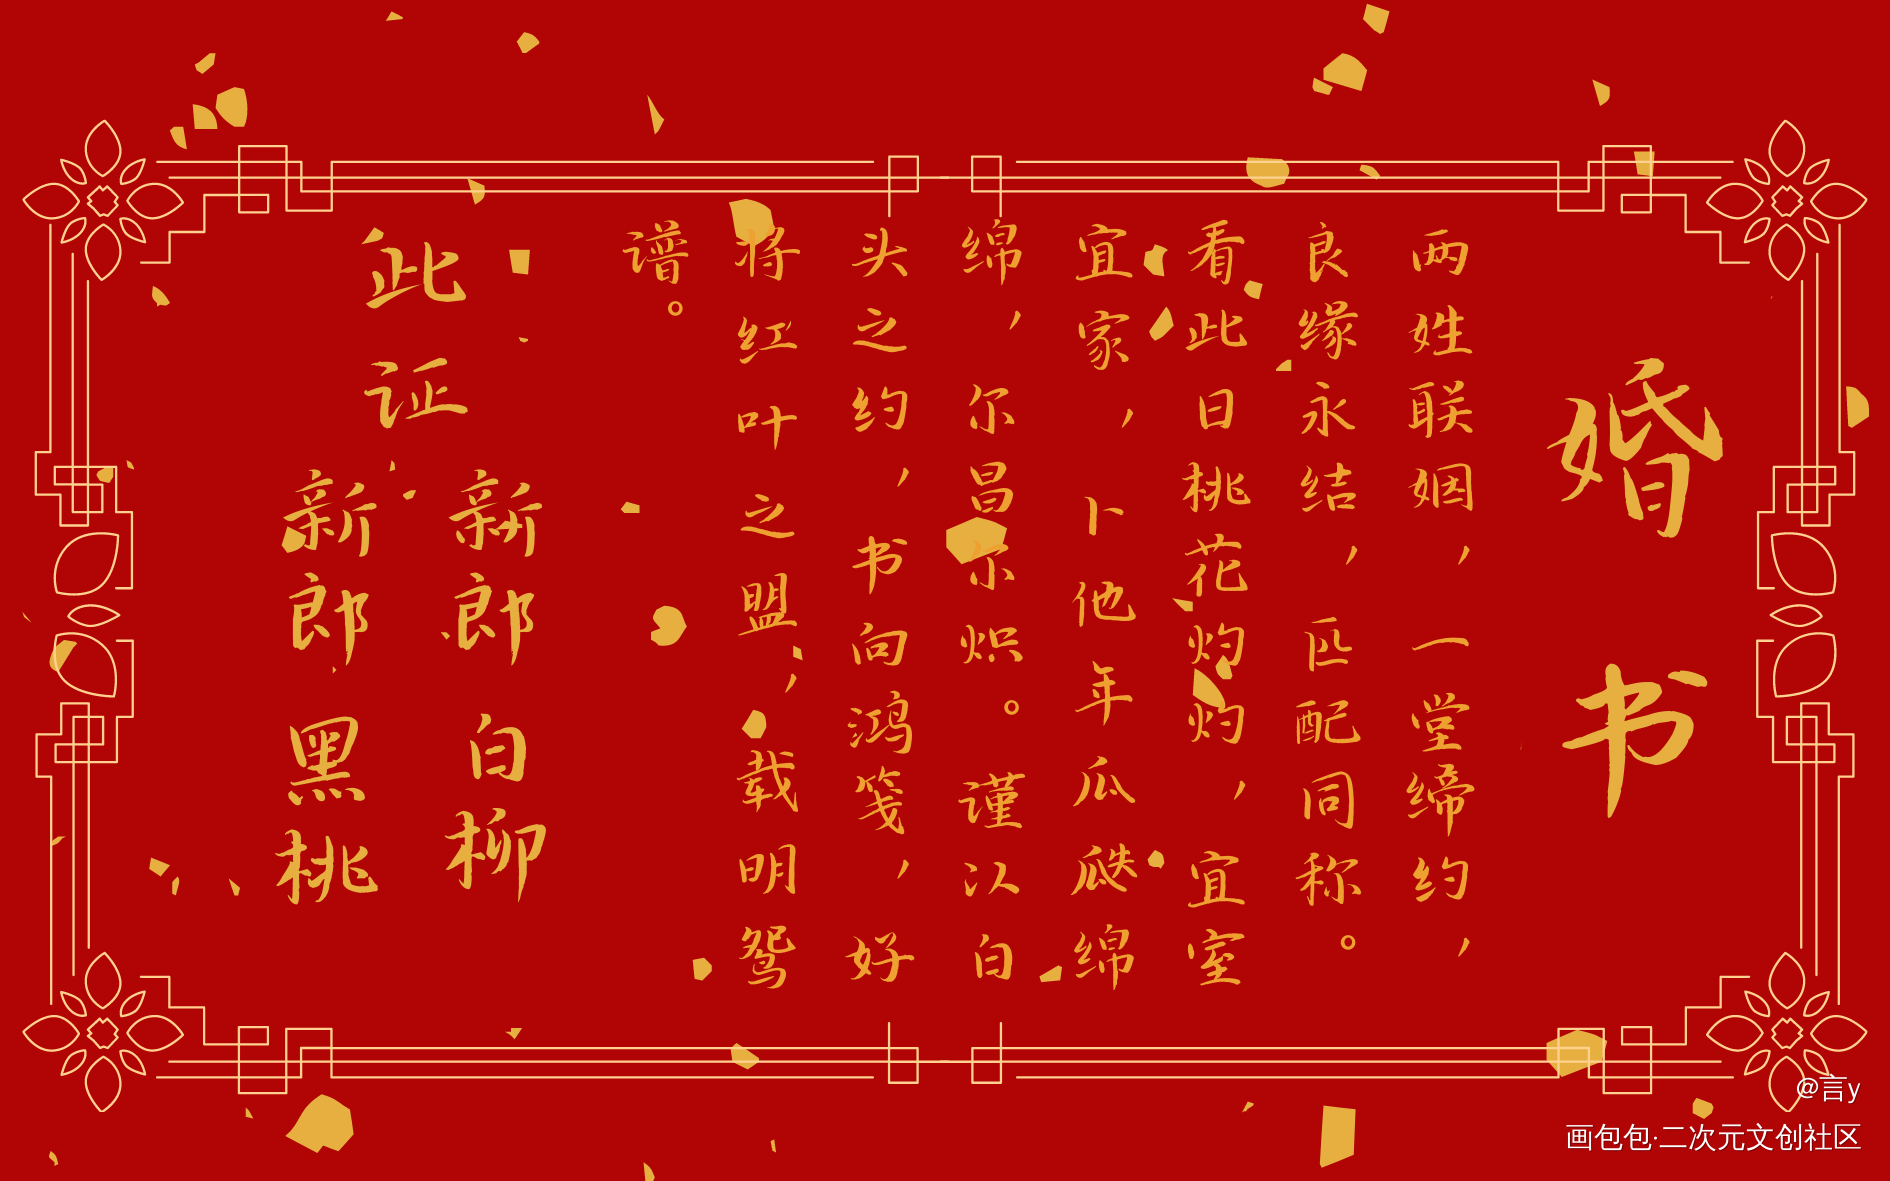 婚书
两姓联姻，一堂缔约，
良缘永结，匹配同称。
看此日桃花灼灼，宜室
宜家，卜他年瓜瓞绵
绵，尔昌尔炽。谨以白
头之约，书向鸿笺，好
将红叶之盟，载明鸳
谱。
此证
新郎 白柳
新郎 黑桃
@言y
画包包·二次元文创社区